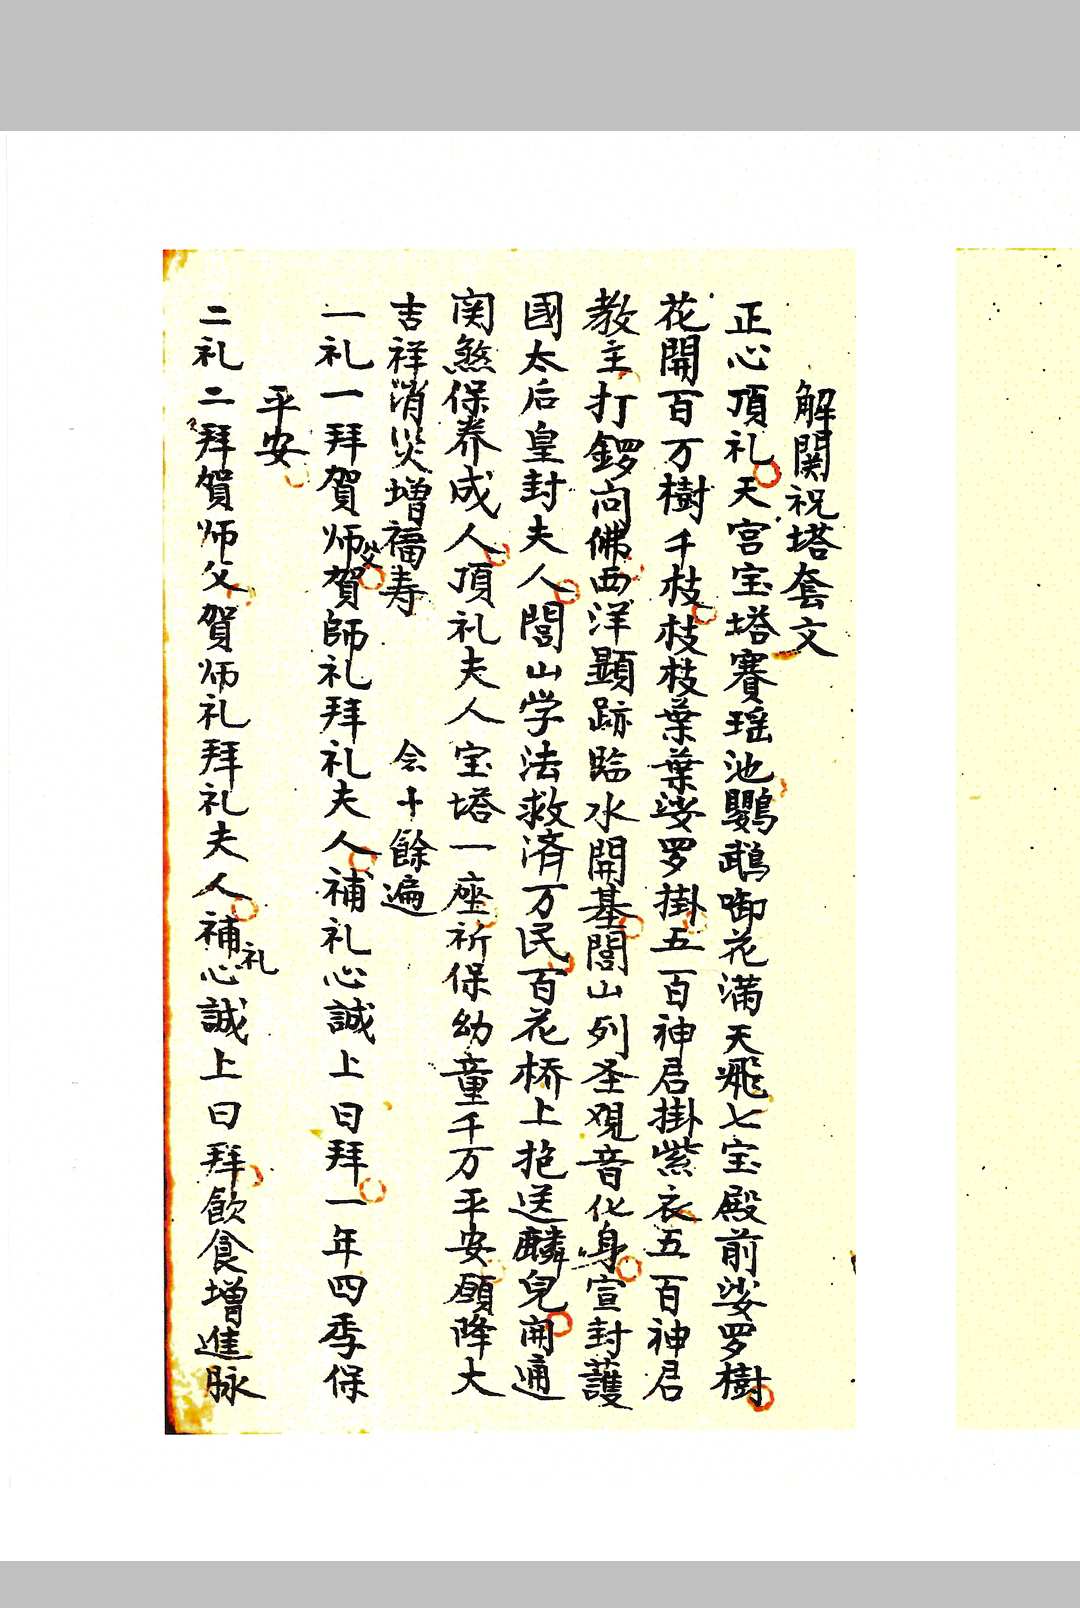 解関祝塔套文
正心頂礼天宫宝塔賽瑶池鸚鵡啣花滿天飛七宝殿前娑罗樹
花開百万樹千枝枝枝葉葉娑罗掛五百神君掛紫衣五百神君
教主打鑼向佛西洋顯跡臨水開基閭山列圣观音化身宣封護
國太后皇封夫人閭山学法救済万民百花桥上抱送麟兒開通
関煞保养成人頂礼夫人宝塔一座祈保幼童千万平安願降大
吉祥消災增福寿 念十餘遍
一礼一拜賀师父賀師礼拜礼夫人補礼心誠上曰拜一年四季保
平安
二礼二拜賀师父賀师礼拜礼夫人補礼心誠上曰拜飲食增進脉